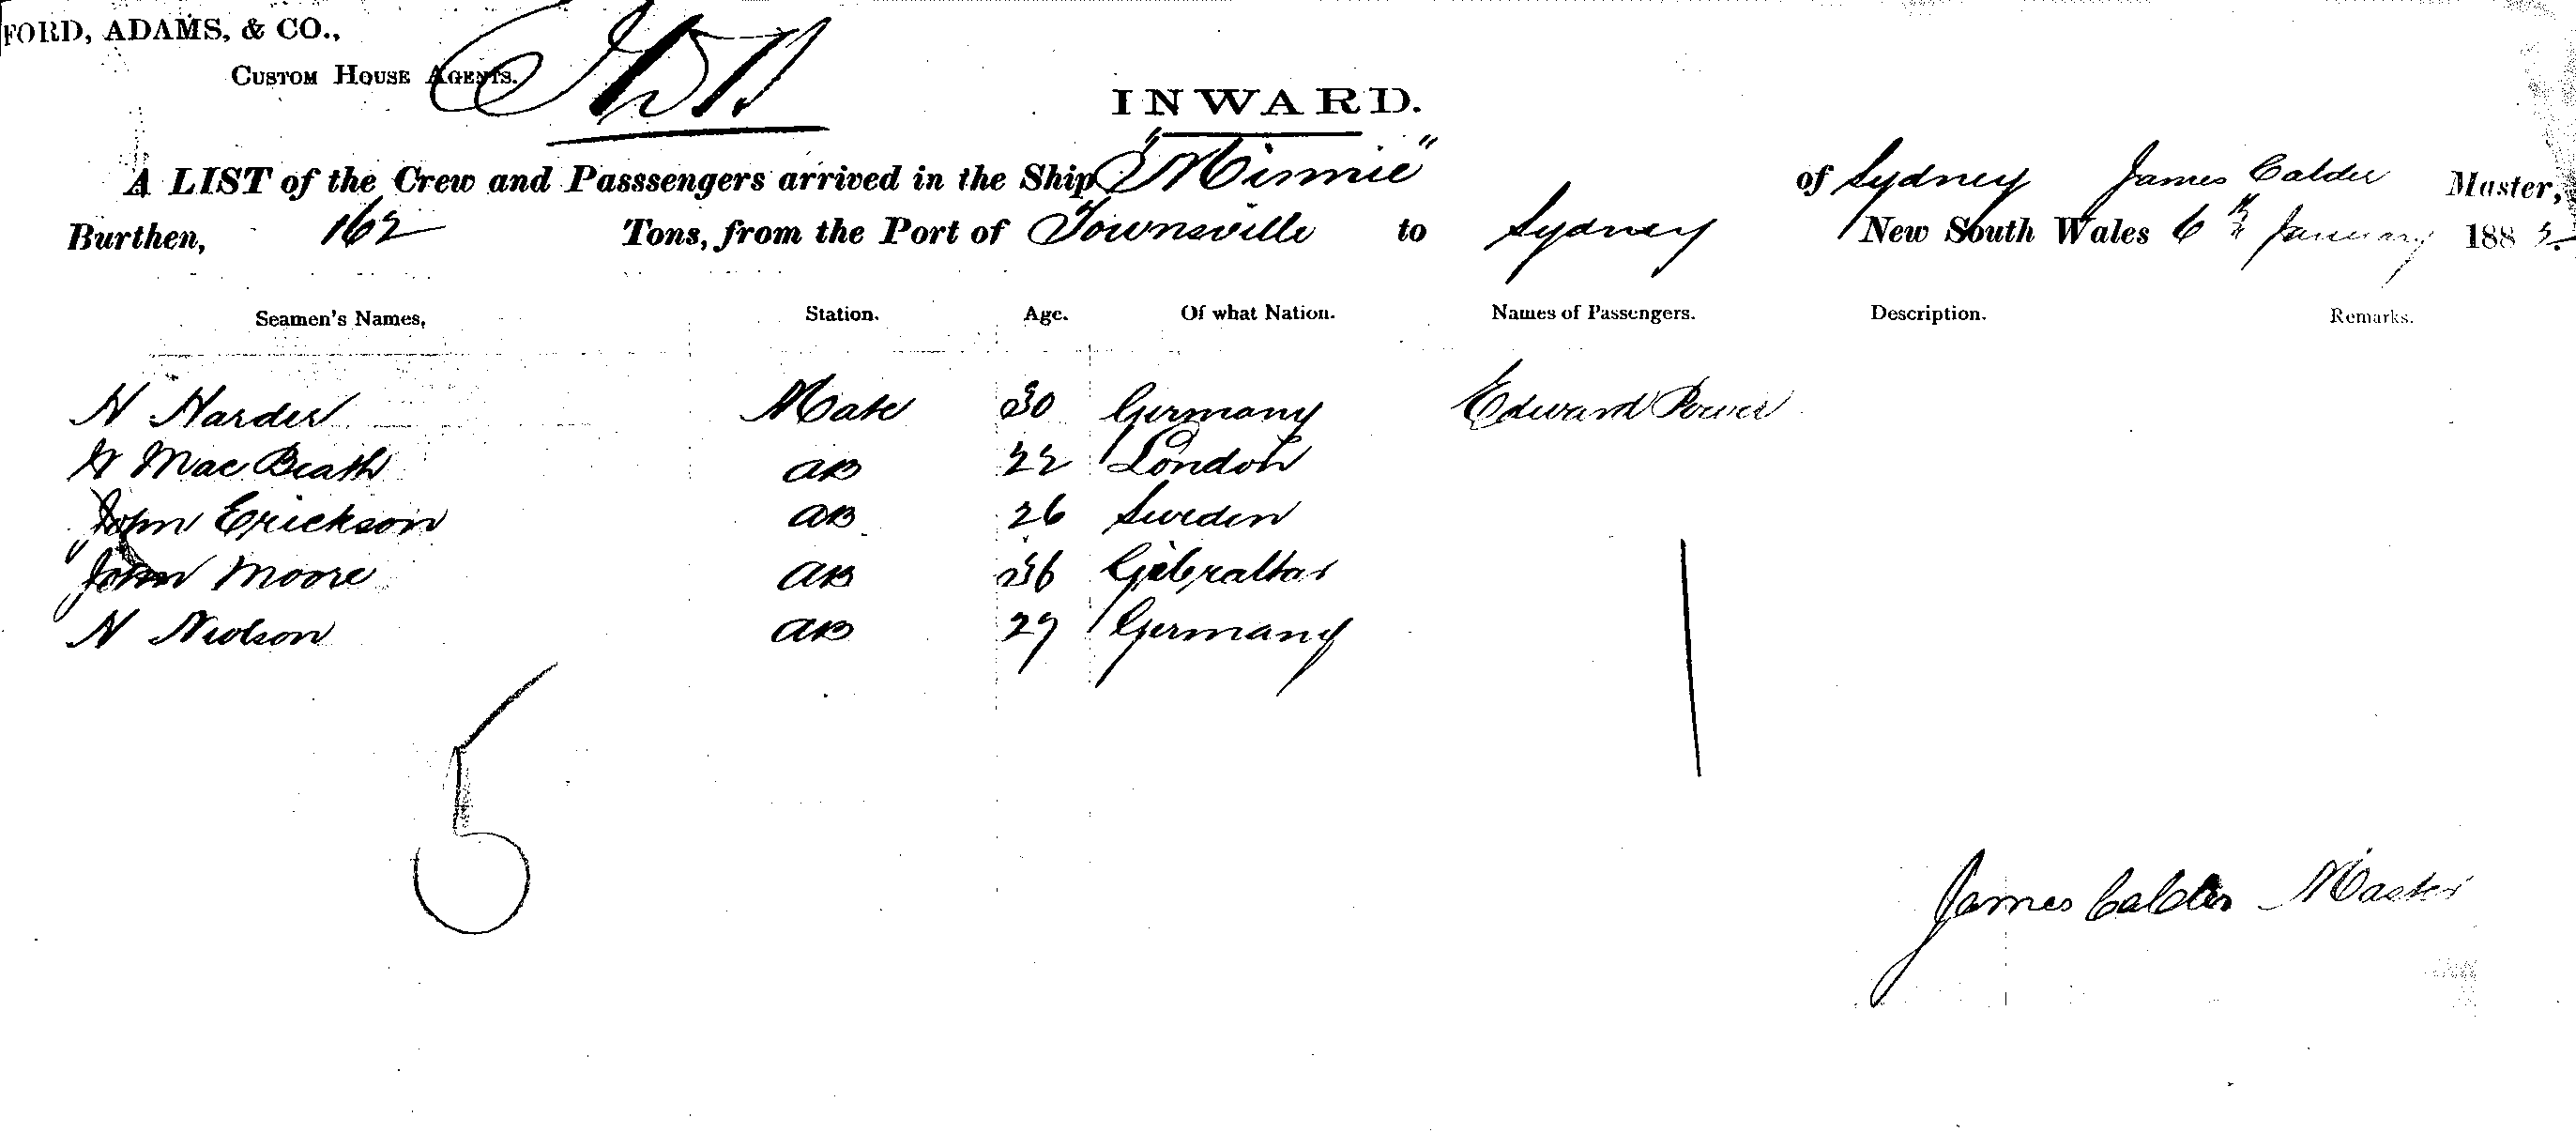 FORD, ADAMS, & CO.,
CUSTOM HOUSE AGENTS.
INWARD.
A LIST of the Crew and Passsengers arrived in the Ship "Minnie" of Sydney James Calder Master,
Burthen, 162 Tons, from the Port of Townsville to Sydney New South Wales 6th January 188
Seamen's Names, Station. Age. Of what Nation. Names of Passengers. Description. Remarks.
H Harder Mate 30 Germany Edward Power
Mac Beath AB 22 London
John Erickson AB 26 Sweden
John Moore AB 36 Gibraltar
N AB 29 Germany
5
James Calder Master